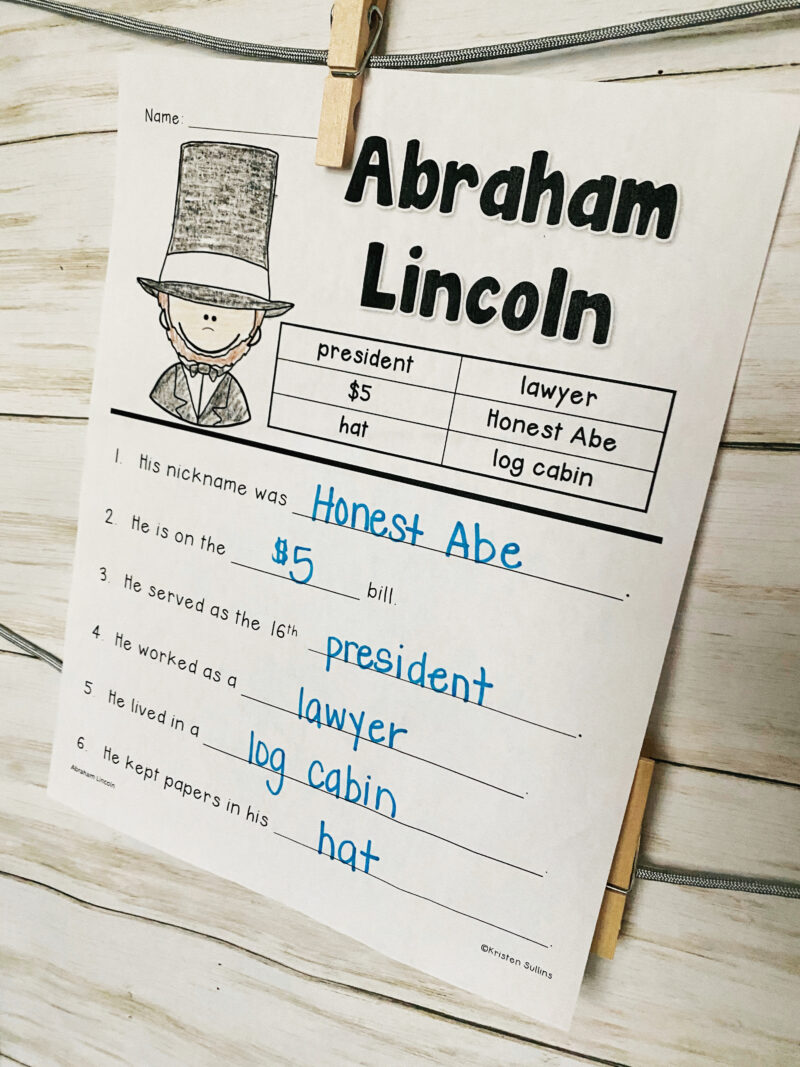 Name:
Abraham
Lincoln
president lawyer
$5 Honest Abe
hat log cabin
1. His nickname was Honest Abe.
2. He is on the $5 bill.
3. He served as the 16th president.
4. He worked as a lawyer.
5 He lived in a log cabin.
6. He kept papers in his hat.
Abraham Lincoln
©Kristen Sullins